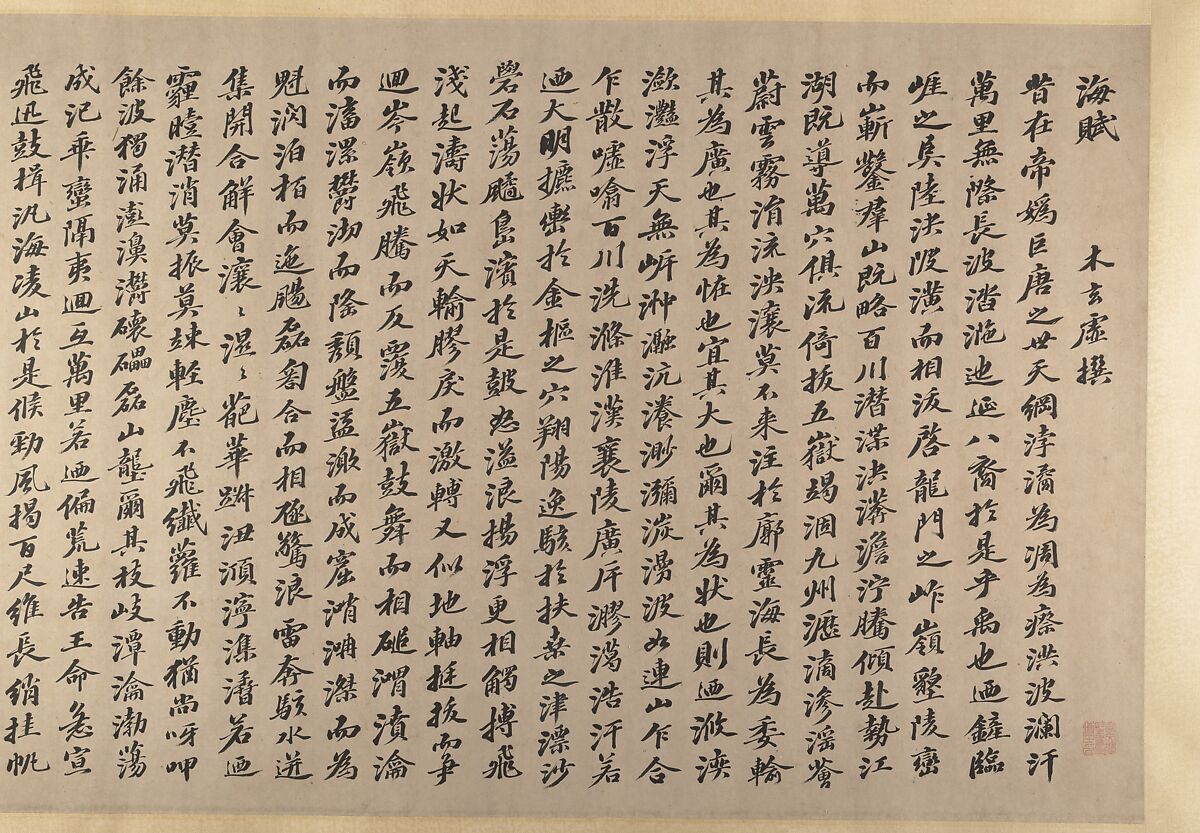 海賦　木玄虛撰
昔在帝嬀巨唐之世天綱浡潏為凋為瘵洪波瀾汗
萬里無際長波涾㴧迆涎八裔於是乎禹也迺鏟臨
崖之阜陸決陂潢而相沷啓龍門之岝嶺墾陵巒
而嶄鑿羣山既略百川潛渫泱漭澹泞騰傾赴勢江
湖既導萬穴俱流倚拔五嶽竭涸九州瀝滴滲淫薈
蔚雲霧涓流泱瀼莫不来注於廓靈海長為委輸
其為廣也其為恠也宜其大也爾其為狀也則迺浟湙
瀲灩浮天無岸沖瀜沆瀁渺瀰湠漫波如連山乍合
乍散噓噏百川洗滌淮漢襄陵廣斥㵧㵧浩汗若
迺大明㩵轡於金樞之穴翔陽逸駭於扶桒之津漂沙
礐石蕩䬍島濱於是鼓怒溢浪揚浮更相觸搏飛
淺起濤狀如天輪膠戾而激轉又似地軸挺拔而爭
迴岑嶺飛騰而反覆五嶽鼓舞而相磓㵒濆瀹
而滀漯鬱沏而隆頽盤盓激而成窟㳙㴐滐而為
魁㴸泊栢而迆颺磊匒合而相豗驚浪雷奔駭水迸
集開合解會瀼〻濕〻葩華踧沑澒濘潗㵫若迺
霾曀潛消莫振莫竦輕塵不飛纖蘿不動猶尚呀呷
餘波獨涌澎濞灪磙磊山壟爾其枝岐潭瀹渤蕩
成汜乖蠻隔夷迴互萬里若迺偏荒速告王命急宣
飛迅鼓楫汎海凌山於是候勁風揭百尺維長綃挂帆